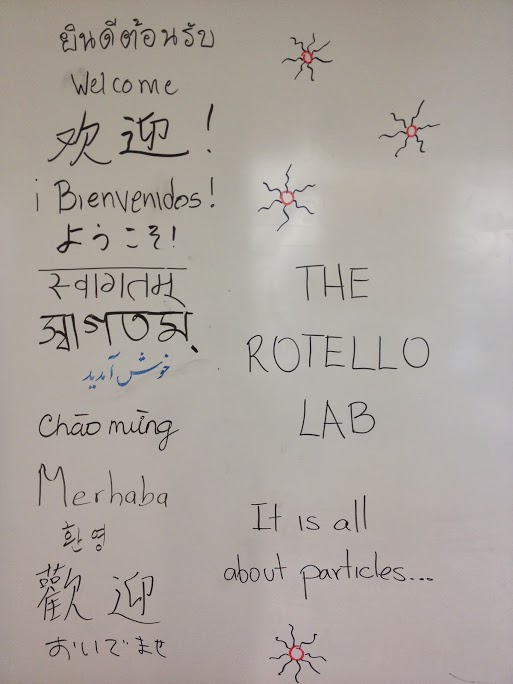 ยินดีต้อนรับ
Welcome
欢迎!
¡Bienvenidos!
ようこそ!
स्वागतम्
স্বাগতম.
خوش آمدید
Chào mừng
Merhaba
환영
歡迎
おいでませ
THE
ROTELLO
LAB
It is all
about particles...